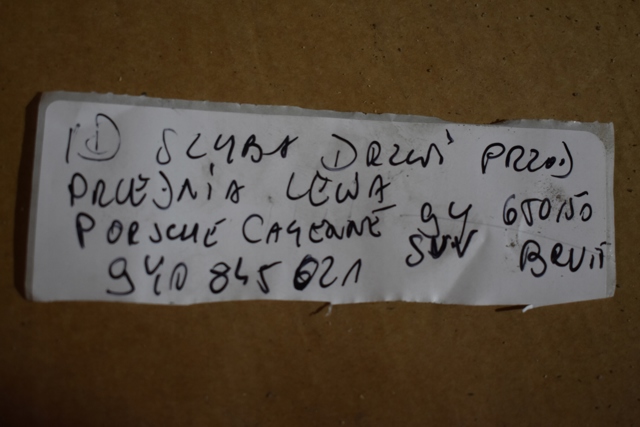 1D SZYBA DRZWI PRZOD
PRZEDNIA LEWA
PORSCHE CAYENNE 9Y 650150
SUV BRUTT
9Y0 845 021